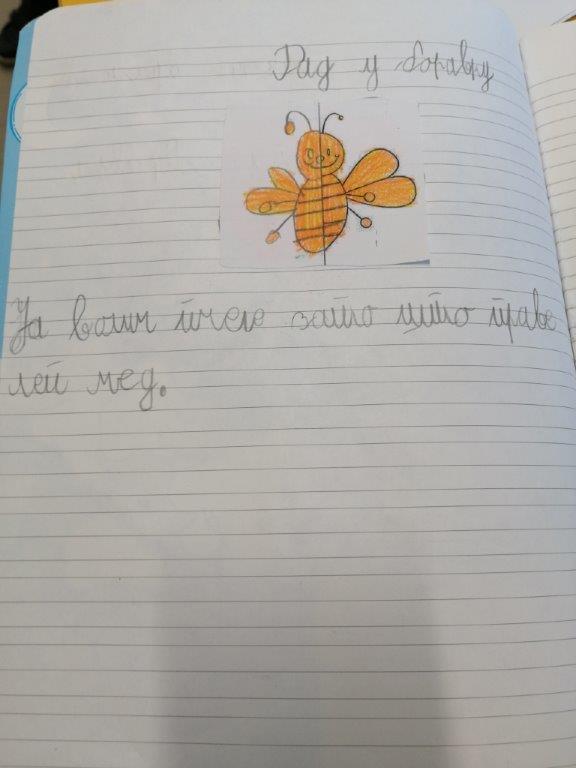 Рад у боравку
Ја волим пчеле зато што праве
леп мед.